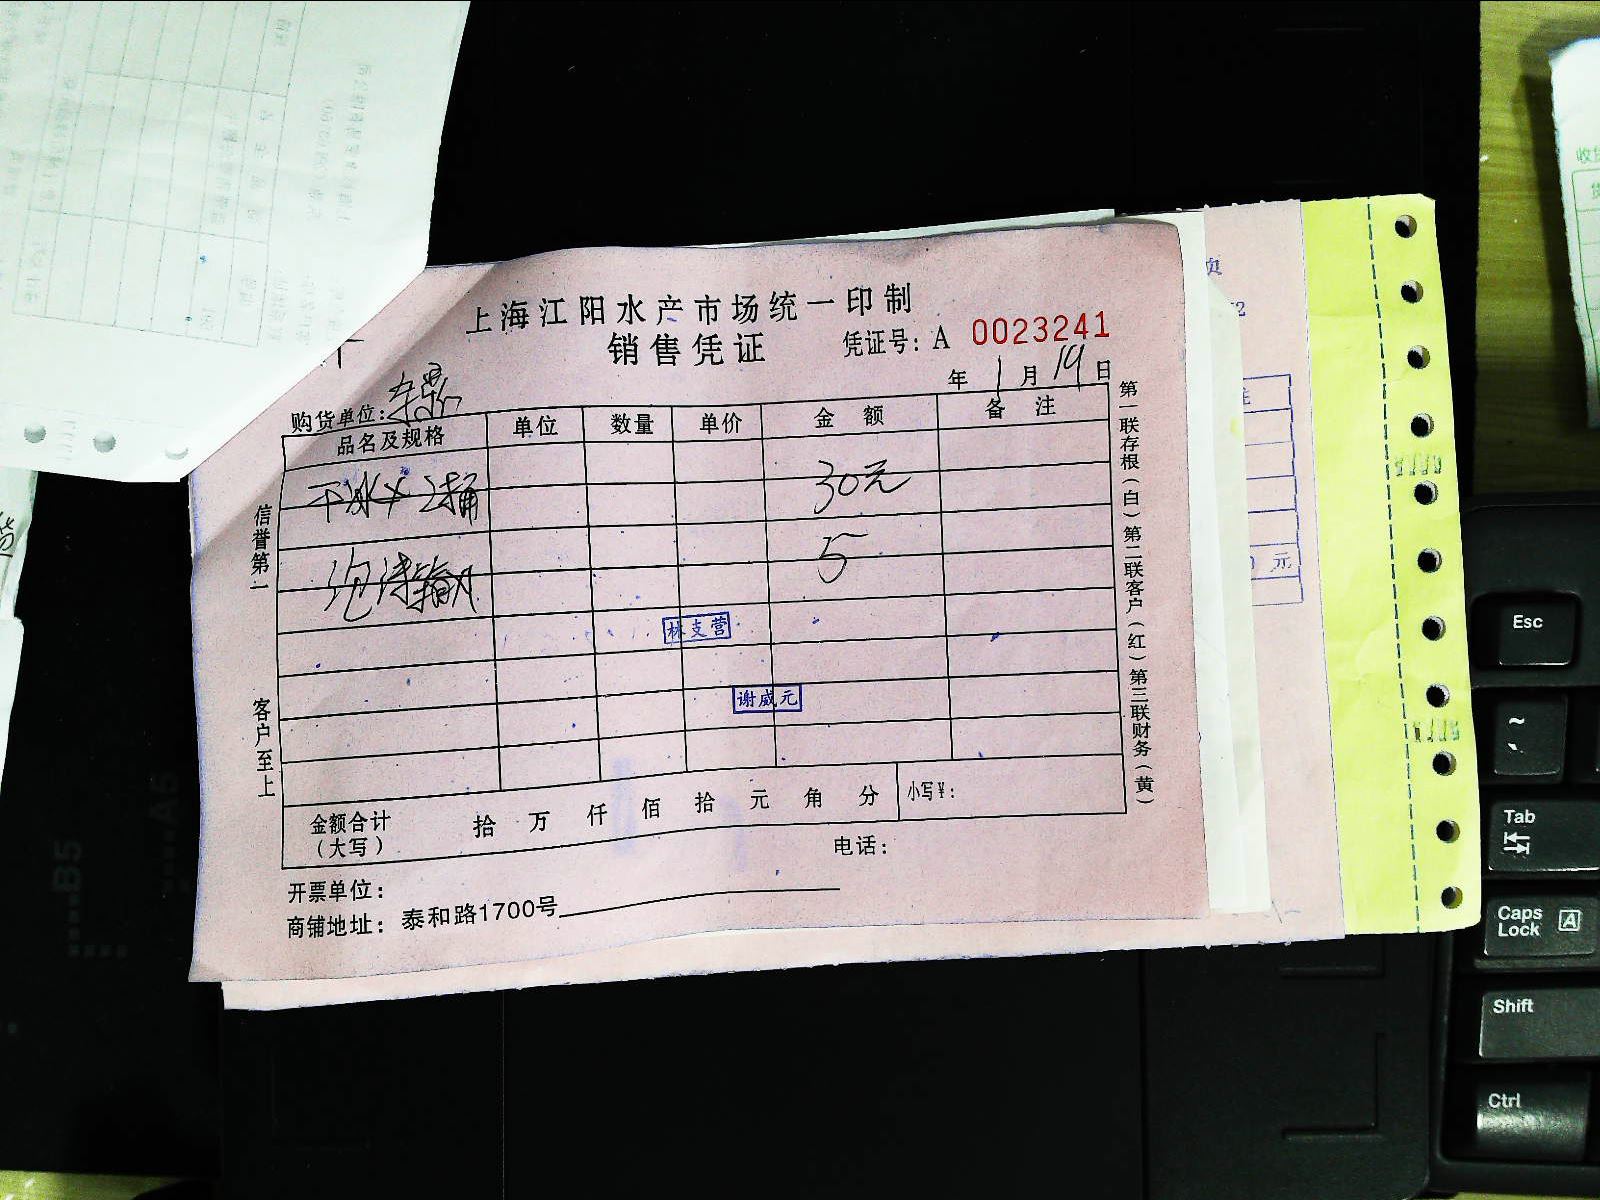 上海江阳水产市场统一印制
销售凭证
凭证号：A 0023241
年 1 月 19 日
购货单位：
品名及规格 单位 数量 单价 金额 备注
干冰× 2桶 30元
泡 5
林支营
谢威元
金额合计（大写） 拾 万 仟 佰 拾 元 角 分 小写￥：
开票单位： 电话：
商铺地址：泰和路1700号
信誉第一 客户至上
第一联存根（白）第二联客户（红）第三联财务（黄）
页
元
Esc
~
Tab
Caps Lock A
Shift
Ctrl
B5
A5